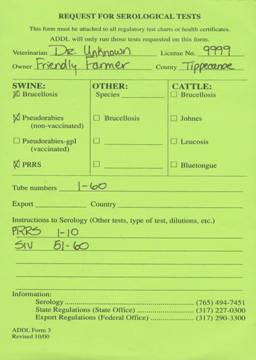 REQUEST FOR SEROLOGICAL TESTS
This form must be attached to all regulatory test charts or health certificates.
ADDL will only run those tests requested on this form.
Veterinarian Dr. Unknown License No. 9999
Owner Friendly Farmer County Tippecanoe
SWINE: OTHER: CATTLE:
☒ Brucellosis Species ☐ Brucellosis
☒ Pseudorabies ☐ Brucellosis ☐ Johnes
(non-vaccinated)
☐ Pseudorabies-gpI ☐ ☐ Leucosis
(vaccinated)
☒ PRRS ☐ ☐ Bluetongue
Tube numbers 1-60
Export Country
Instructions to Serology (Other tests, type of test, dilutions, etc.)
PRRS 1-10
SIV 51-60
Information:
Serology (765) 494-7451
State Regulations (State Office) (317) 227-0300
Export Regulations (Federal Office) (317) 290-3300
ADDL Form 3
Revised 10/00